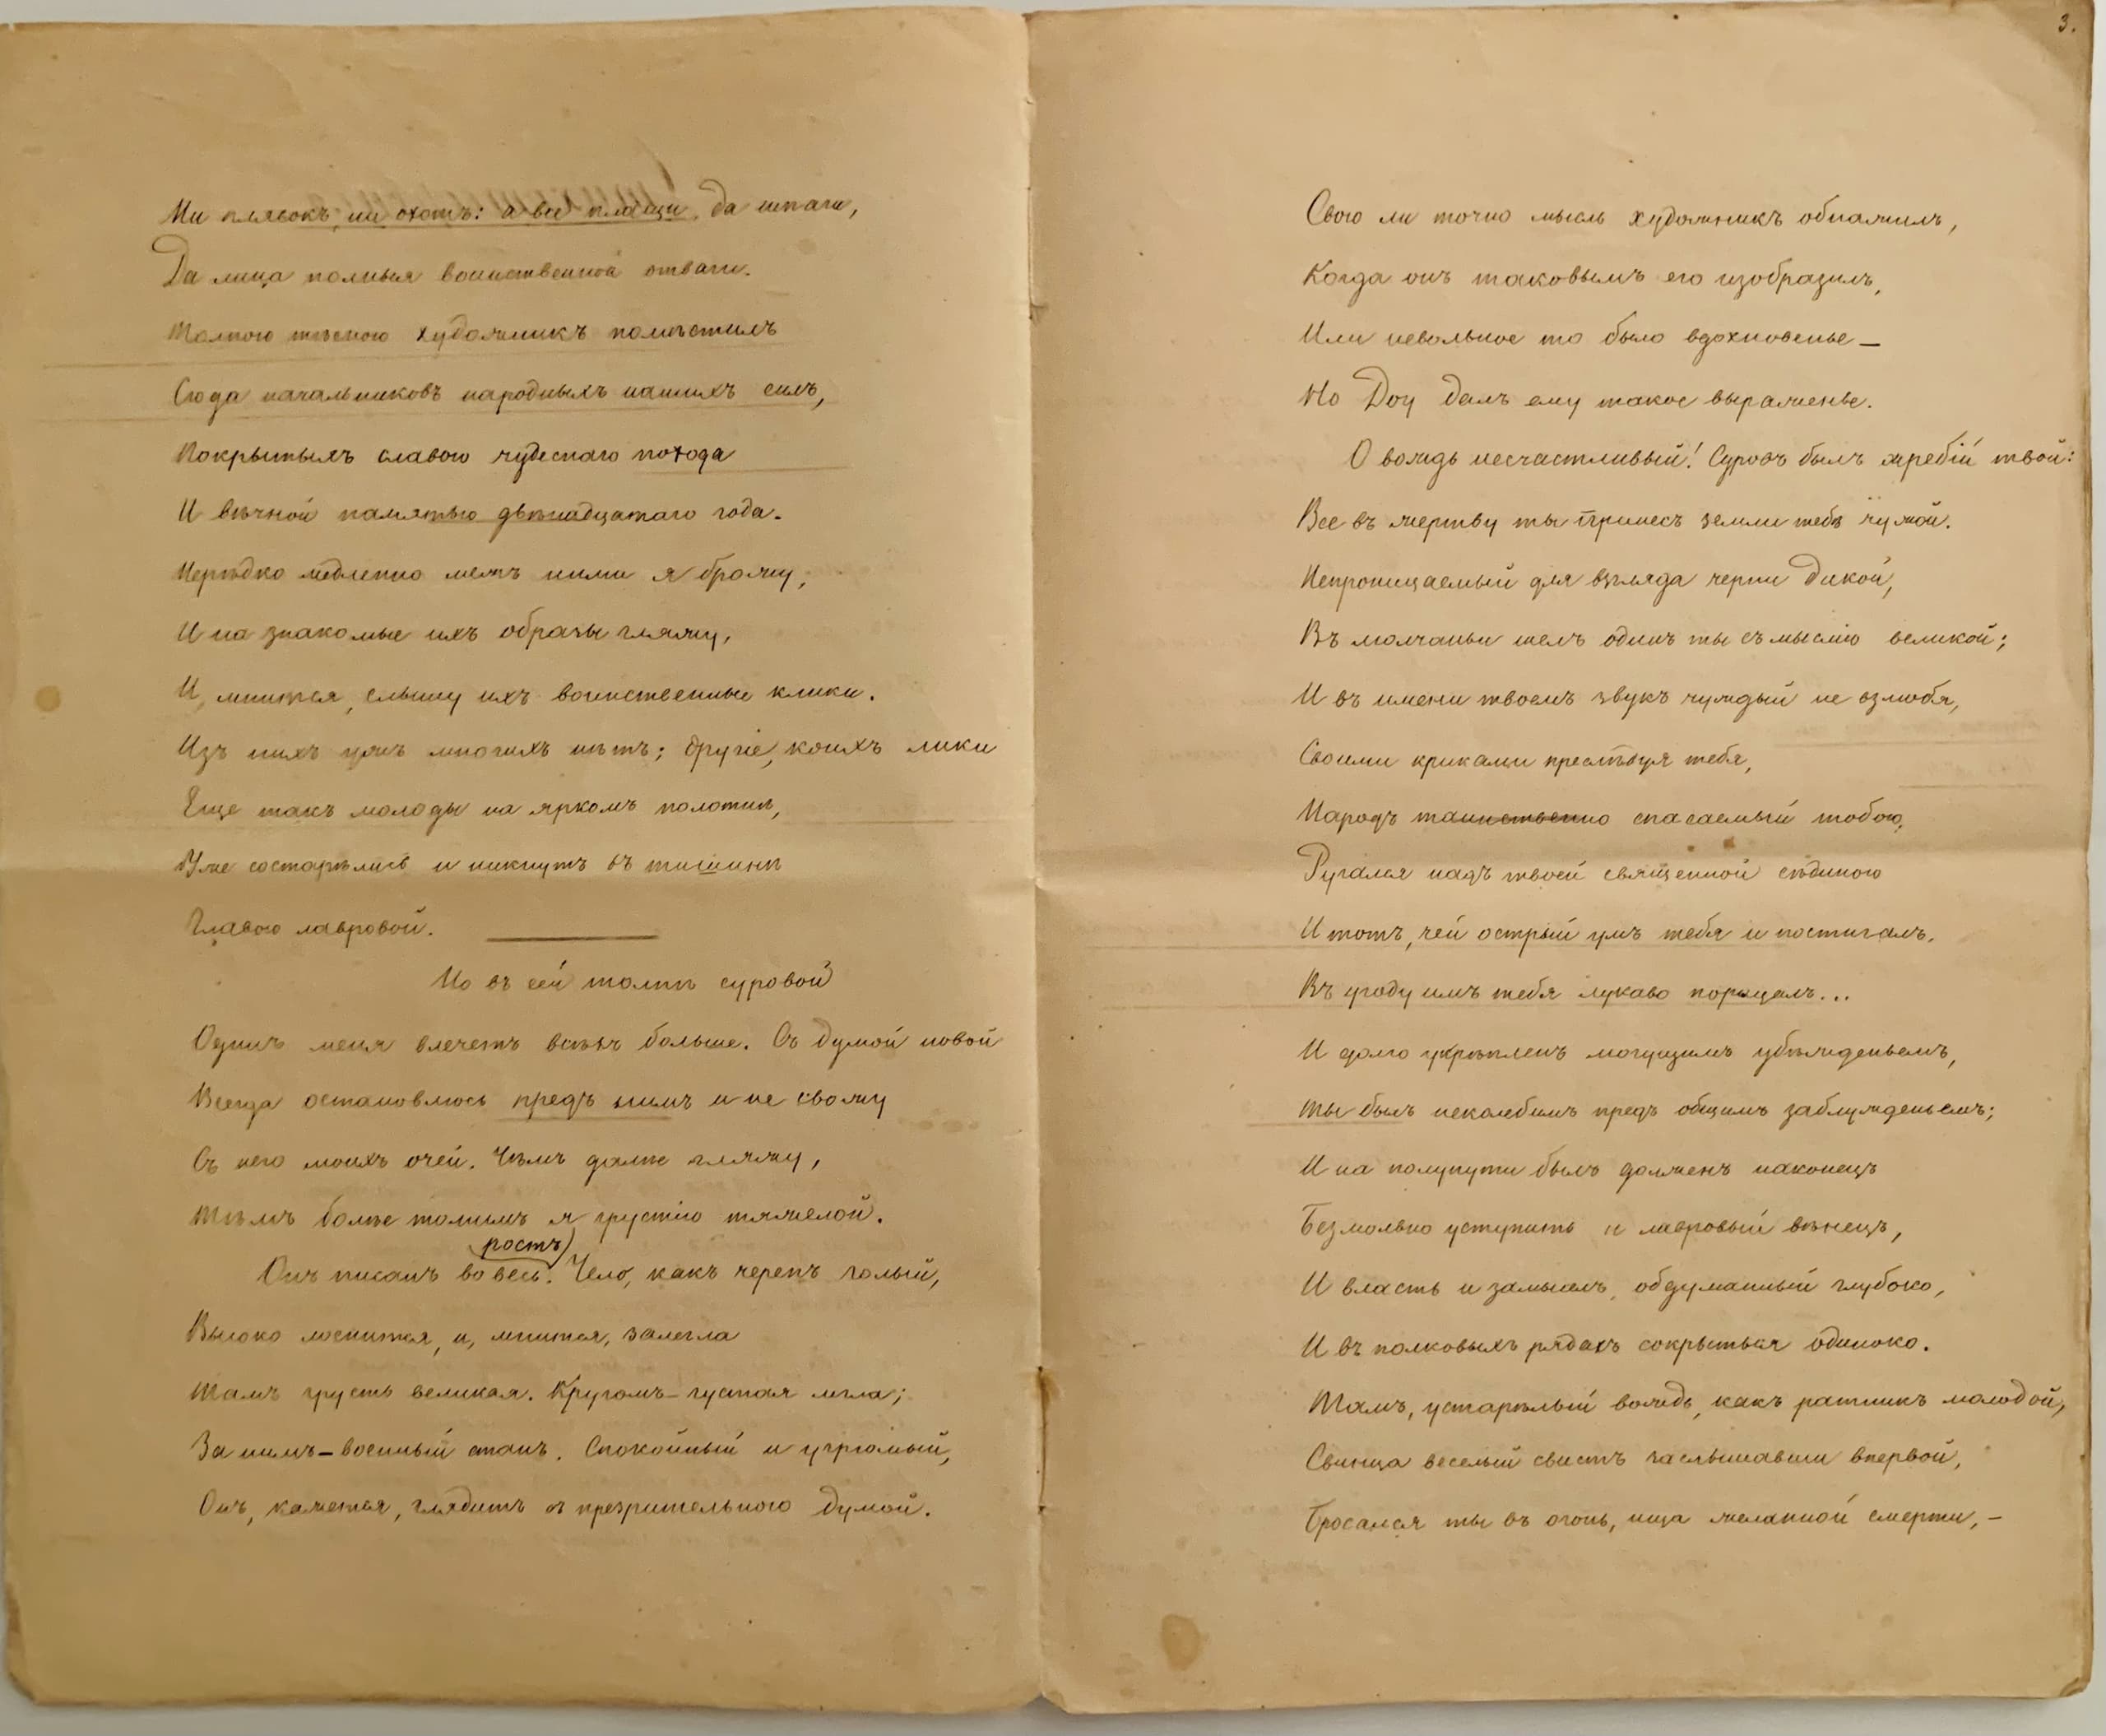 Ни плясокъ, ни охотъ: а все плащи, да шпаги,
Да лица полныя воинственной отваги.
Толпою тѣсною художникъ помѣстилъ
Сюда начальниковъ народныхъ нашихъ силъ,
Покрытыхъ славою чудеснаго похода
И вѣчной памятью двѣнадцатаго года.
Нерѣдко медленно межъ ними я брожу,
И на знакомые ихъ образы гляжу,
И, мнится, слышу ихъ воинственные клики.
Изъ нихъ ужъ многихъ нѣтъ; другіе, коихъ лики
Еще такъ молоды на яркомъ полотнѣ,
Уже состарѣлись и никнутъ въ тишинѣ
Главою лавровой.
Но въ сей толпѣ суровой
Одинъ меня влечетъ всѣхъ больше. Съ думой новой
Всегда остановлюсь предъ нимъ и не свожу
Съ него моихъ очей. Чѣмъ далѣе гляжу,
Тѣмъ болѣе томимъ я грустію тяжелой.
ростъ
Онъ писанъ во весь. Чело, какъ черепъ голый,
Высоко лоснится, и, мнится, залегла
Тамъ грусть великая. Кругомъ – густая мгла;
За нимъ – военный станъ. Спокойный и угрюмый,
Онъ, кажется, глядитъ съ презрительного думой.
3.
Свою ли точно мысль художникъ обнажилъ,
Когда онъ таковымъ его изобразилъ,
Или невольное то было вдохновенье –
Но Доу далъ ему такое выраженье.
О вождь несчастливый! Суровъ былъ жребій твой:
Все въ жертву ты принесъ земли тебѣ чужой.
Непроницаемый для взгляда черни дикой,
Въ молчаньи шелъ одинъ ты съ мыслію великой;
И въ имени твоемъ звукъ чуждый не взлюбя,
Своими криками преслѣдуя тебя,
Народъ таинственно спасаемый тобою,
Ругался надъ твоей священной сѣдиною
И тотъ, чей острый умъ тебя и постигалъ,
Въ угоду имъ тебя лукаво порицалъ...
И долго укрѣпленъ могущимъ убѣжденьемъ,
Ты былъ неколебимъ предъ общимъ заблужденьемъ;
И на полупути былъ долженъ наконецъ
Безмолвно уступить и лавровый вѣнецъ,
И власть и замыселъ, обдуманный глубоко,
И въ полковыхъ рядахъ сокрыться одиноко.
Тамъ, устарѣлый вождь, какъ ратникъ молодой,
Свинца веселый свистъ заслышавши впервой,
Бросался ты въ огонь, ища желанной смерти, –